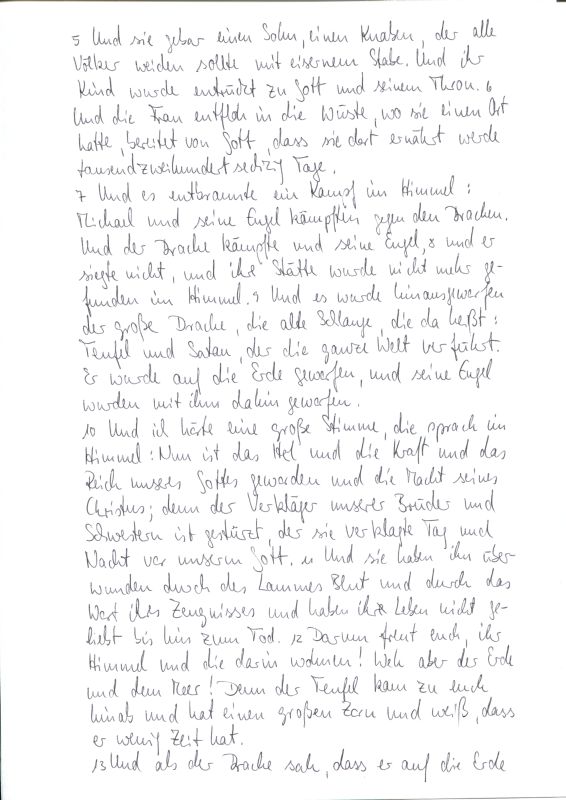 5 Und sie gebar einen Sohn, einen Knaben, der alle
Völker weiden sollte mit eisernem Stabe. Und ihr
Kind wurde entrückt zu Gott und seinem Thron. 6
Und die Frau entfloh in die Wüste, wo sie einen Ort
hatte, bereitet von Gott, dass sie dort ernährt werde
tausendzweihundertsechzig Tage.
7 Und es entbrannte ein Kampf im Himmel:
Michael und seine Engel kämpften gegen den Drachen.
Und der Drache kämpfte und seine Engel, 8 und er
siegte nicht, und ihre Stätte wurde nicht mehr ge-
funden im Himmel. 9 Und es wurde hinausgeworfen
der große Drache, die alte Schlange, die da heißt:
Teufel und Satan, der die ganze Welt verführt.
Er wurde auf die Erde geworfen, und seine Engel
wurden mit ihm dahin geworfen.
10 Und ich hörte eine große Stimme, die sprach im
Himmel: Nun ist das Heil und die Kraft und das
Reich unseres Gottes geworden und die Macht seines
Christus; denn der Verkläger unserer Brüder und
Schwestern ist gestürzt, der sie verklagte Tag und
Nacht vor unserm Gott. 11 Und sie haben ihn über-
wunden durch des Lammes Blut und durch das
Wort ihres Zeugnisses und haben ihr Leben nicht ge-
liebt bis hin zum Tod. 12 Darum freut euch, ihr
Himmel und die darin wohnen! Weh aber der Erde
und dem Meer! Denn der Teufel kam zu euch
hinab und hat einen großen Zorn und weiß, dass
er wenig Zeit hat.
13 Und als der Drache sah, dass er auf die Erde